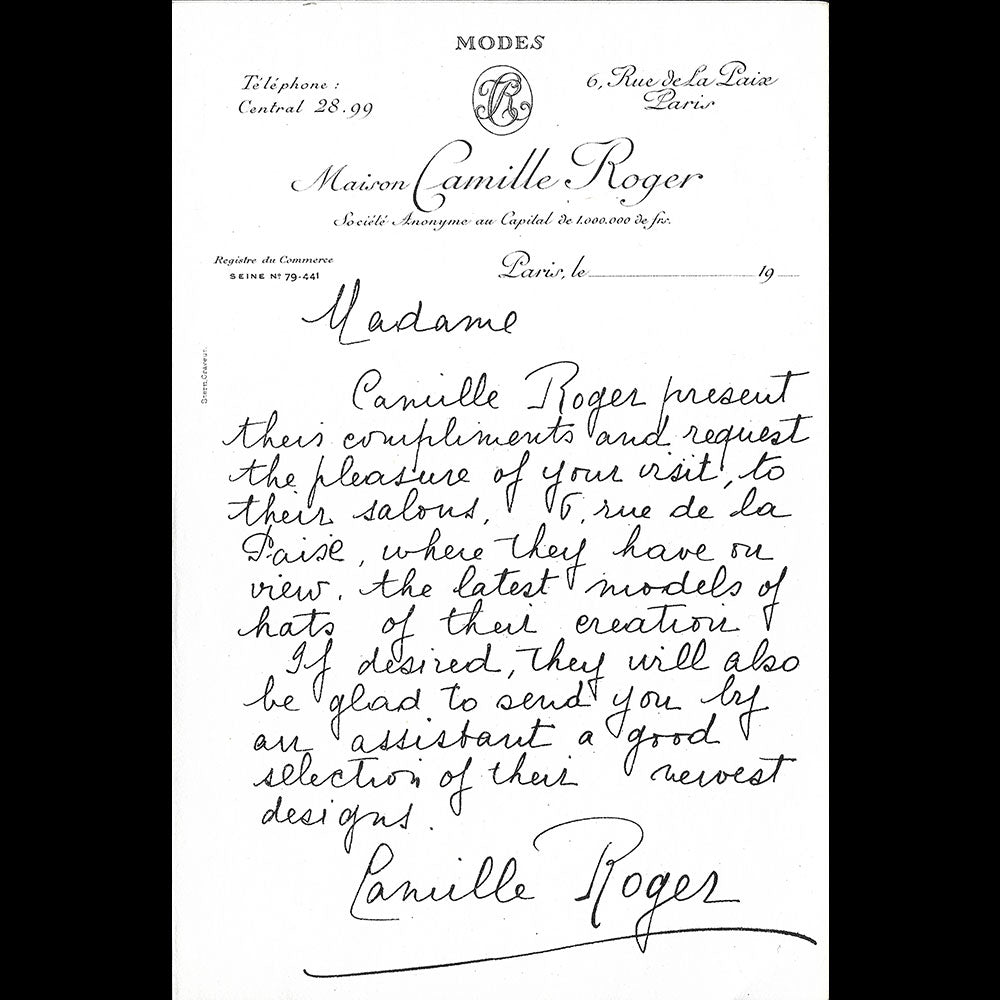 MODES
Téléphone :
Central 28.99
CR
6, Rue de La Paix
Paris
Maison Camille Roger
Société Anonyme au Capital de 1.000.000 de frs.
Registre du Commerce
SEINE No 79-441
Paris, le 19
Stern, Graveur.
Madame
Camille Roger present
their compliments and request
the pleasure of your visit, to
their salons, 6, rue de la
Paix, where they have on
view, the latest models of
hats of their creation
If desired, they will also
be glad to send you by
an assistant a good
selection of their newest
designs.
Camille Roger